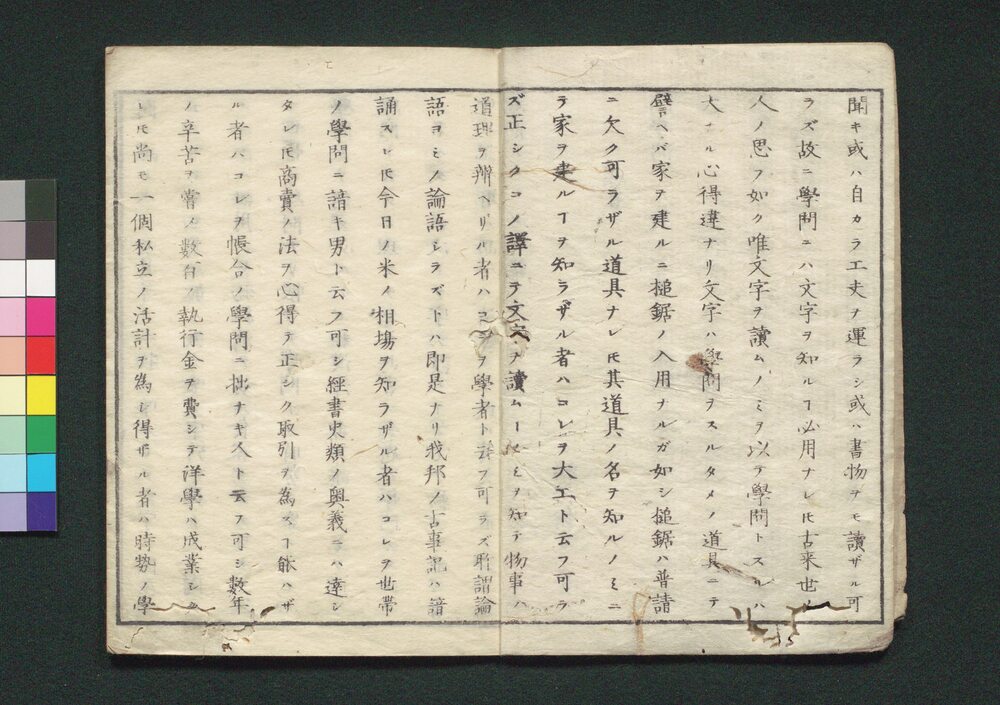 聞キ或ハ自カラ工丈ナ運ラシ或ハ書物ヲモ讀ザル可
ラズ故ニ學問ニハ文字ヲ知ルヿ必用ナレ𪜈古来世ノ
人ノ思フ如ク唯文字ヲ讀ムノミヲ以テ學問トスルハ
大ナル心得違ナリ文字ハ學問ヲスルタメノ道具ニテ
譬ヘバ家ヲ建ルニ槌鋸ノ入用ナルガ如シ槌鋸ハ普請
ニ欠ク可ラザル道具ナレ𪜈其道具ノ名ヲ知ルノミニ
ラ家ヲ建ルヿヲ知ラザル者ハコレヲ大工ト云フ可ラ
ズ正シクコノ譯ニテ文字ヲ讀ムヿノミヲ知テ物事ハ
道理ヲ辨ヘザル者ハコレヲ學者ト云フ可ラズ所謂論
語ヨミノ論語シラズトハ即是ナリ我邦ノ古事記ハ諳
誦スレ𪜈今日ノ米ノ相場ヲ知ラザル者ハコレヲ世帯
ノ學問ニ諳キ男ト云フ可シ經書史類ノ奥義ニハ達シ
タレ𪜈商賣ノ法ヲ心得テ正シク取引ヲ為スヿ能ハザ
ル者ハコレヲ帳合ノ學問ニ拙ナキ人ト云フ可シ數年
ノ辛苦ヲ嘗メ數百ノ執行金ヲ費シテ洋學ハ成業シタ
レ𪜈尚モ一個私立ノ活計ヲ為シ得ザル者ハ時勢ノ學